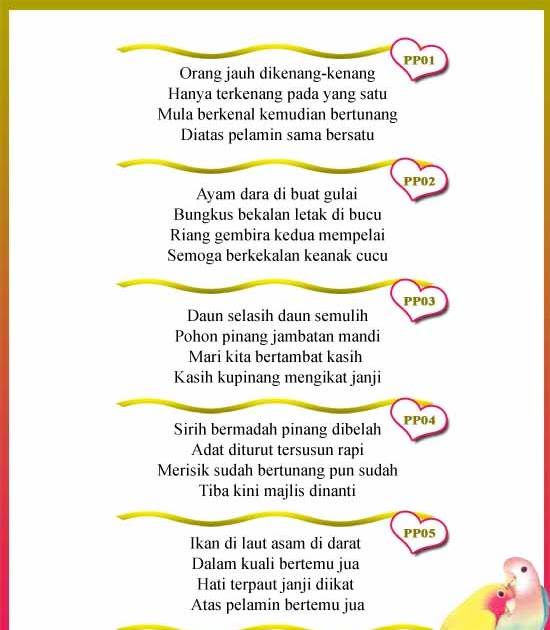 PP01
Orang jauh dikenang-kenang
Hanya terkenang pada yang satu
Mula berkenal kemudian bertunang
Diatas pelamin sama bersatu
PP02
Ayam dara di buat gulai
Bungkus bekalan letak di bucu
Riang gembira kedua mempelai
Semoga berkekalan keanak cucu
PP03
Daun selasih daun semulih
Pohon pinang jambatan mandi
Mari kita bertambat kasih
Kasih kupinang mengikat janji
PP04
Sirih bermadah pinang dibelah
Adat diturut tersusun rapi
Merisik sudah bertunang pun sudah
Tiba kini majlis dinanti
PP05
Ikan di laut asam di darat
Dalam kuali bertemu jua
Hati terpaut janji diikat
Atas pelamin bertemu jua